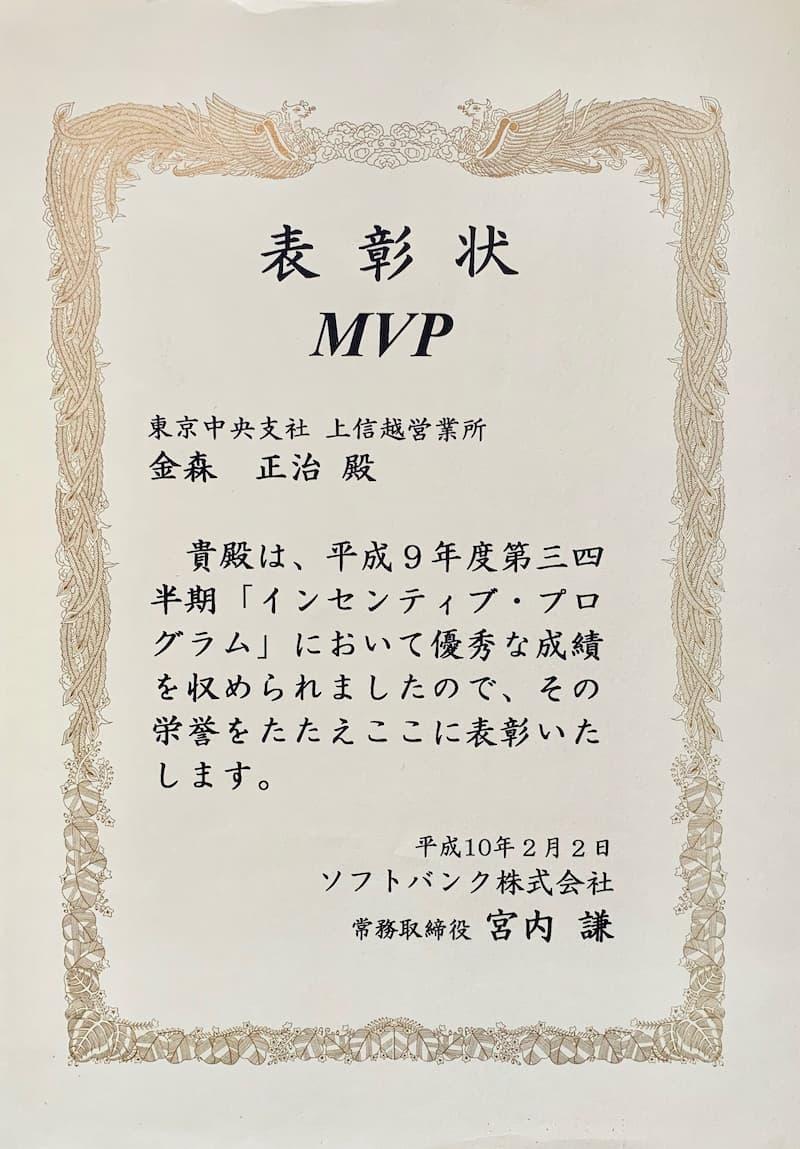 表彰状
MVP
東京中央支社 上信越営業所
金森　正治 殿
貴殿は、平成９年度第三四
半期「インセンティブ・プロ
グラム」において優秀な成績
を収められましたので、その
栄誉をたたえここに表彰いた
します。
平成10年２月２日
ソフトバンク株式会社
常務取締役 宮内 謙